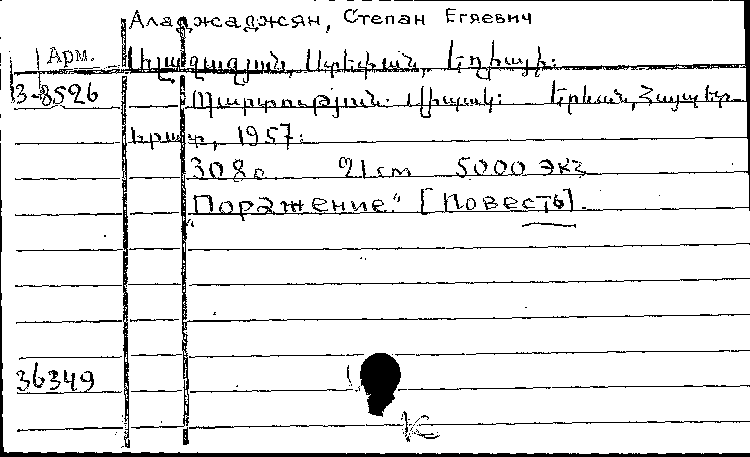 Аладжаджян, Степан Егяевич
Арм. Ալաջաջյան, Ստեփան, Եղիայի:
3-8526 Պարտություն: Վիպակ: Երևան, Հայպետ-
հրատ, 1957:
308 с 21 cm 5000 экз
"Поражение" [Повесть].
36349